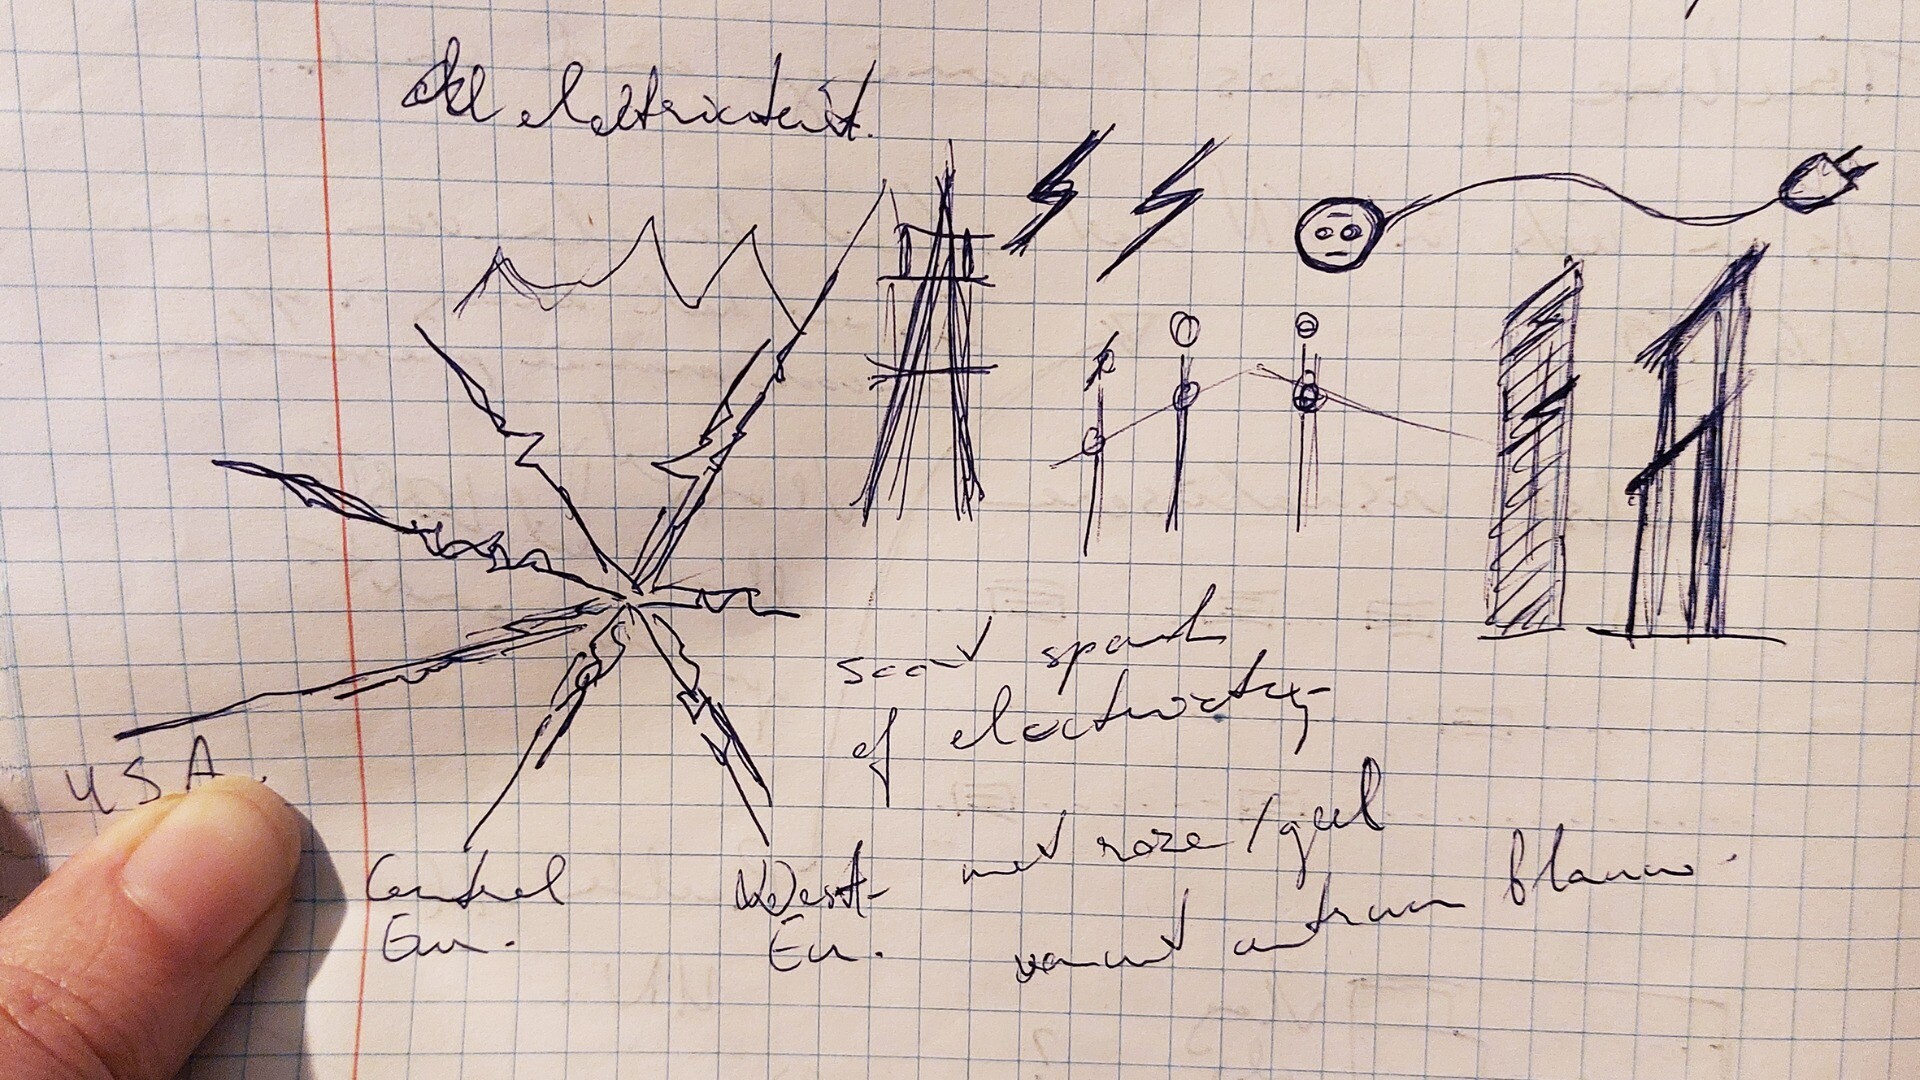 elektriciteit.
soort spark
of electricity
met roze/geel
vanuit centrum blauw.
USA.
Central
Eu.
West-
Eu.